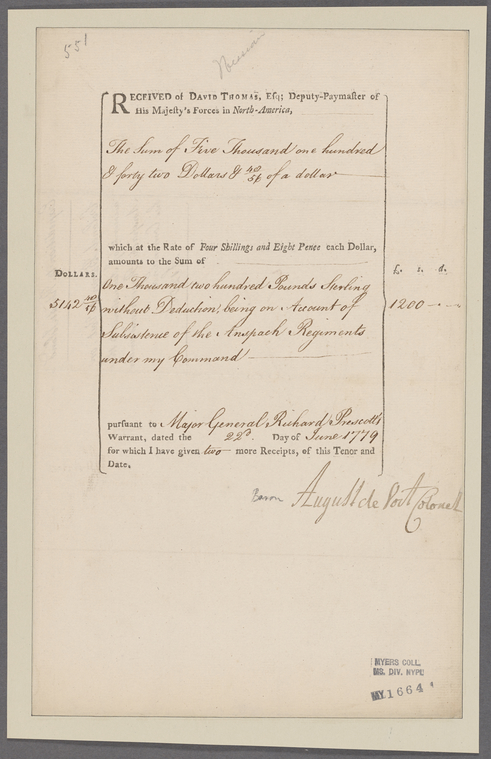 551
RECEIVED of DAVID THOMAS, Esq; Deputy-Paymaster of
His Majesty's Forces in North-America,
The Sum of Five Thousand one hundred
& forty two Dollars & 40/56 of a dollar
which at the Rate of Four Shillings and Eight Pence each Dollar,
amounts to the Sum of
DOLLARS.
£. s. d.
One Thousand two hundred Pounds Sterling
5142 40/56 without Deduction, being on Account of 1200 - -
Subsistence of the Anspach Regiments
under my Command
pursuant to Major General Richard Prescott's
Warrant, dated the 22d. Day of June 1779
for which I have given two more Receipts, of this Tenor and
Date.
Baron August de Voit Colonell
MYERS COLL.
MS. DIV. NYPL
MY 1664